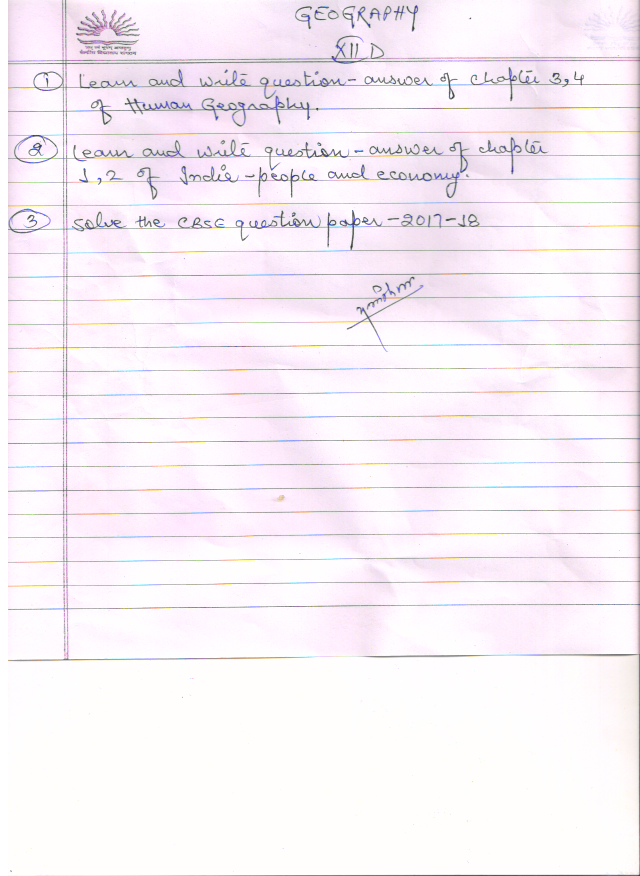 GEOGRAPHY
XII D
① Learn and write question - answer of chapter 3,4
of Human Geography.
② Learn and write question - answer of chapter
1,2 of India - people and economy.
③ Solve the CBSE question paper - 2017-18